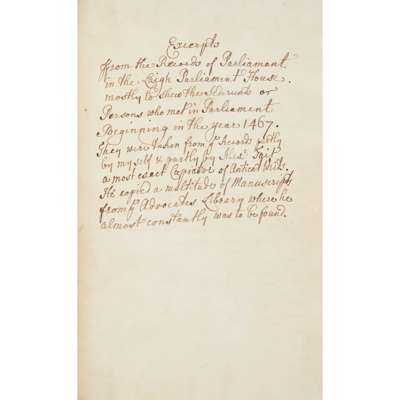 Excerpts
ffrom the Records of Parliament
in the Leigh Parliament House.
mostly to shew the Sedrunts or
Persons who met in Parliament
Beginning in the year 1467.
They were taken from yᵉ Records partly
by my self & partly by Alexʳ Tait
a most exact Copiator of Antient Write.
He copied a multitude of Manuscripts
from yᵉ Advocates Library where he
almost constantly was to be found.